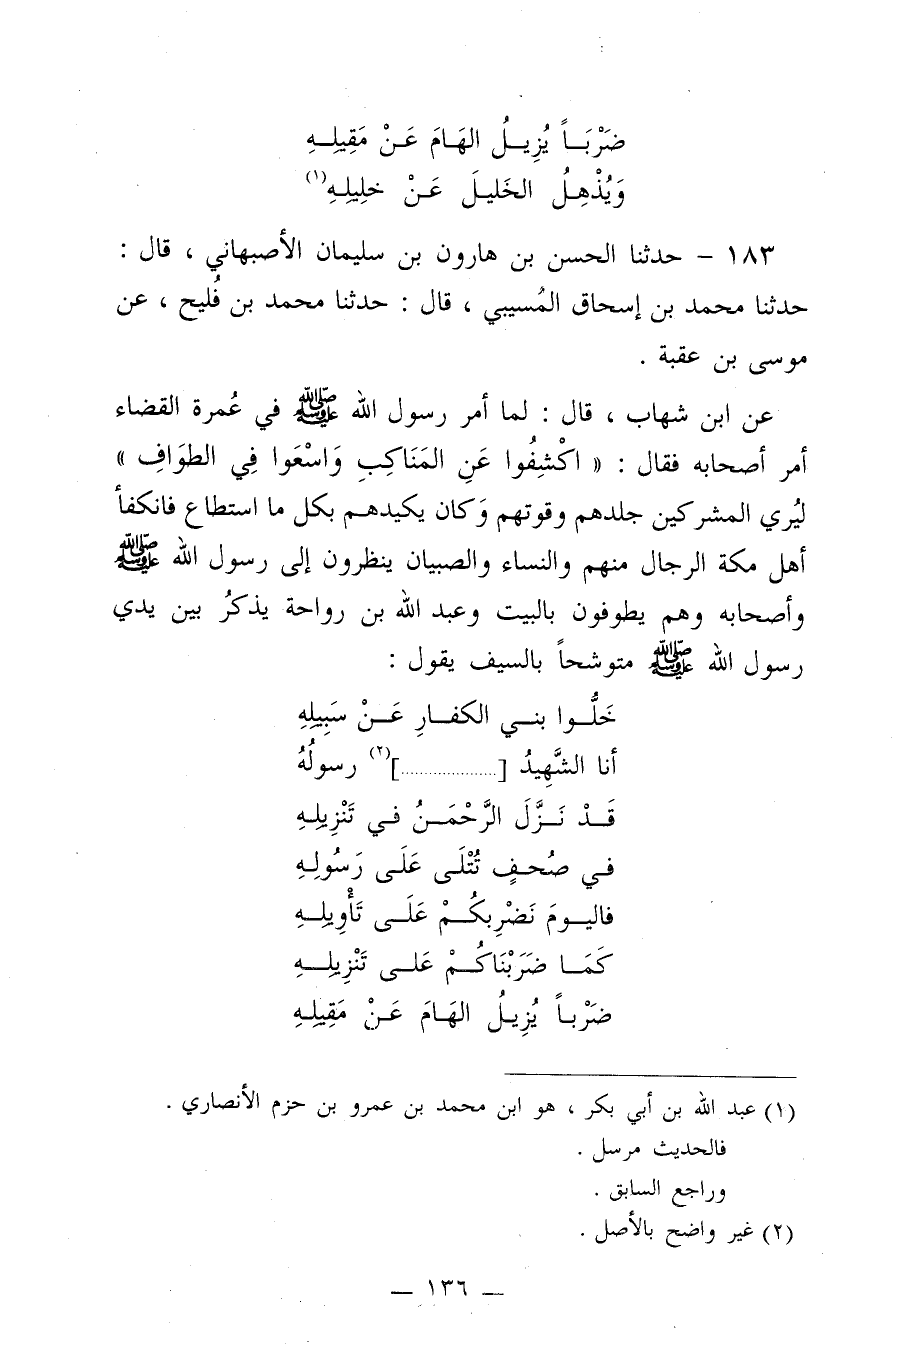 ضَرْبَــاً يُزِيــلُ الهَـامَ عَــنْ مَقِيلِــهِ
وَيُذْهِــلُ الخَليـلَ عَــنْ خلِيلِهِ(١)
١٨٣ - حدثنا الحسن بن هارون بن سليمان الأصبهاني ، قال :
حدثنا محمد بن إسحاق المُسيبي ، قال : حدثنا محمد بن فُليح ، عن
موسى بن عقبة .
عن ابن شهاب ، قال : لما أمر رسول الله ﷺ في عُمرة القضاء
أمر أصحابه فقال : « اكْشِفُوا عَنِ المَنَاكِبِ وَاسْعَوا فِي الطوَافِ »
ليُري المشركين جلدهم وقوتهم وَكان يكيدهـم بكل ما استطاع فانكفأ
أهل مكة الرجال منهم والنساء والصبيان ينظرون إلى رسول الله ﷺ
وأصحابه وهم يطوفون بالبيت وعبد الله بن رواحة يذكرُ بين يدي
رسول الله ﷺ متوشحاً بالسيف يقول :
خَلُّــوا بنــي الكفــارِ عَــنْ سَبِيلِهِ
أنا الشَّهِيدُ [....................](٢) رسولُهُ
قَــدْ نَــزَّلَ الرَّحْمَــنُ فــي تَنْزِيلِهِ
فــي صُحــفٍ تُتْلَـى عَلَـى رَسُولِـهِ
فاليــومَ نَضْرِبكُــمْ عَلَــى تَأْوِيلِــهِ
كَمَــا ضَرَبْنَاكُــمْ عَلـى تَنْزِيلِــهِ
ضَرْبـاً يُزِيـلُ الهَـامَ عَــنْ مَقِيلِـهِ
(١) عبد الله بن أبي بكر ، هو ابن محمد بن عمرو بن حزم الأنصاري .
فالحديث مرسل .
وراجع السابق .
(٢) غير واضح بالأصل .
— ١٣٦ —